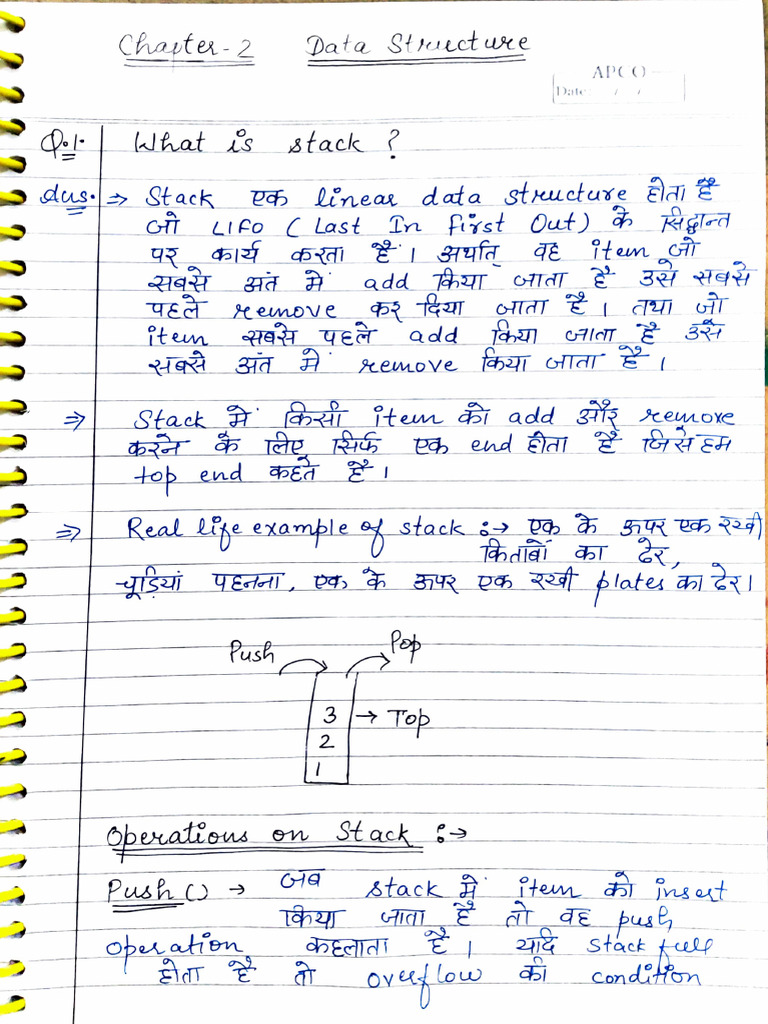 Chapter-2 Data Structure
APCO
Date: / /
Q.1. What is stack ?
Aus. ⇒ Stack एक linear data structure होता है
जो LIFO ( Last In First Out) के सिद्धान्त
पर कार्य करता है । अर्थात् वह item जो
सबसे अंत में add किया जाता है उसे सबसे
पहले remove कर दिया जाता है । तथा जो
item सबसे पहले add किया जाता है उसे
सबसे अंत में remove किया जाता है ।
⇒ Stack में किसी item को add और remove
करने के लिए सिर्फ एक end होता है जिसे हम
top end कहते है ।
⇒ Real life example of stack :→ एक के ऊपर एक रखी
किताबों का ढेर,
चूड़ियां पहनना, एक के ऊपर एक रखी plates का ढेर।
Push Pop
3 → Top
2
1
Operations on Stack :→
Push () → जब stack में item को insert
किया जाता है तो वह push
operation कहलाता है । यदि stack full
होता है तो overflow की condition